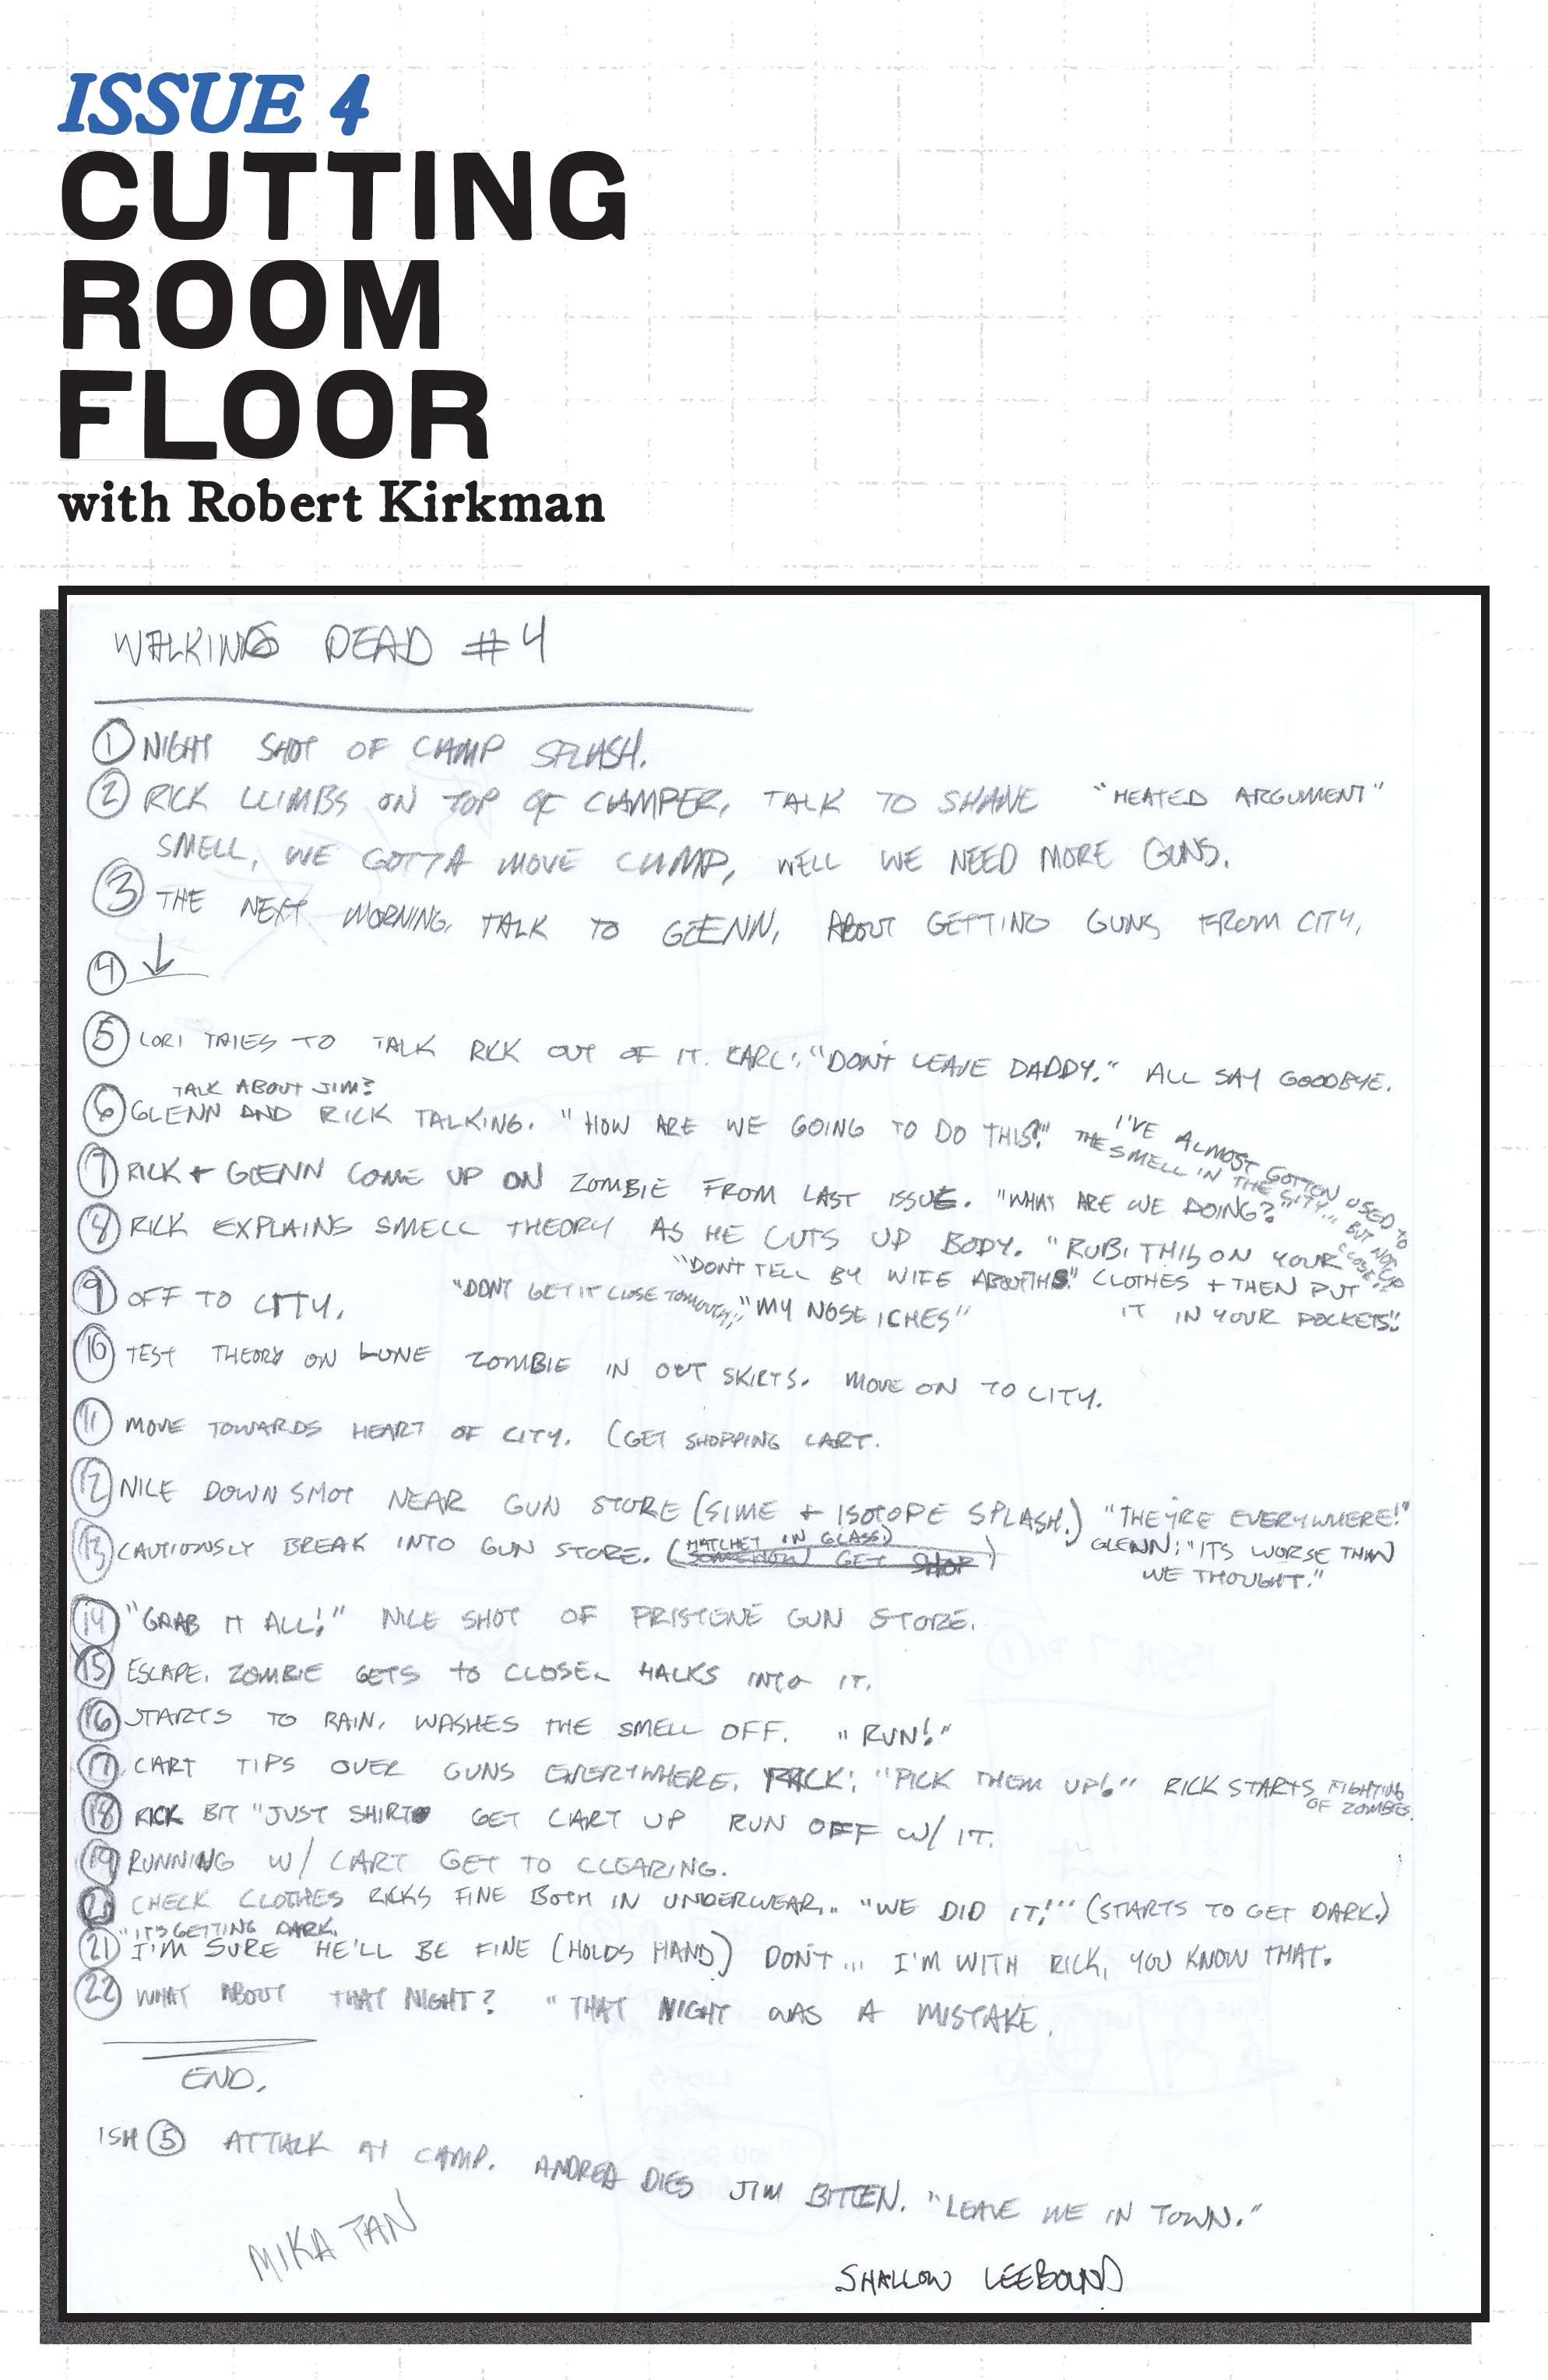 ISSUE 4
CUTTING
ROOM
FLOOR
with Robert Kirkman
WALKING DEAD #4
① NIGHT SHOT OF CAMP SPLASH.
② RICK CLIMBS ON TOP OF CAMPER, TALK TO SHANE "HEATED ARGUMENT"
SMELL, WE GOTTA MOVE CAMP, WELL WE NEED MORE GUNS.
③ THE NEXT MORNING, TALK TO GLENN, ABOUT GETTING GUNS FROM CITY.
④ ↓
⑤ LORI TRIES TO TALK RICK OUT OF IT. CARL: "DON'T LEAVE DADDY." ALL SAY GOODBYE.
TALK ABOUT JIM?
⑥ GLENN AND RICK TALKING. "HOW ARE WE GOING TO DO THIS?" I'VE ALMOST GOTTEN USED TO
THE SMELL IN THE CITY... BUT NOT UP CLOSE.
⑦ RICK + GLENN COME UP ON ZOMBIE FROM LAST ISSUE. "WHAT ARE WE DOING?"
⑧ RICK EXPLAINS SMELL THEORY AS HE CUTS UP BODY. "RUB THIS ON YOUR
CLOTHES + THEN PUT
IT IN YOUR POCKETS."
"DON'T TELL BY WIFE ABOUT THIS."
⑨ OFF TO CITY. "DONT GET IT CLOSE TO MOUTH," "MY NOSE ICHES"
⑩ TEST THEORY ON LONE ZOMBIE IN OUT SKIRTS. MOVE ON TO CITY.
⑪ MOVE TOWARDS HEART OF CITY. (GET SHOPPING CART.
⑫ NICE DOWN SHOT NEAR GUN STORE (SIME + ISOTOPE SPLASH.) "THEY'RE EVERYWHERE!"
GLENN: "ITS WORSE THAN
WE THOUGHT."
⑬ CAUTIOUSLY BREAK INTO GUN STORE. (HATCHET IN GLASS)
SOMEHOW GET SHOP)
⑭ "GRAB IT ALL!" NICE SHOT OF PRISTENE GUN STORE.
⑮ ESCAPE. ZOMBIE GETS TO CLOSE. HALKS INTO IT.
⑯ STARTS TO RAIN, WASHES THE SMELL OFF. "RUN!"
⑰ CART TIPS OVER GUNS EVERYWHERE. RICK: "PICK THEM UP!" RICK STARTS FIGHTING
OF ZOMBIES.
⑱ RICK BIT "JUST SHIRT" GET CART UP RUN OFF W/ IT.
⑲ RUNNING W/ CART GET TO CLEARING.
⑳ CHECK CLOTHES RICKS FINE BOTH IN UNDERWEAR... "WE DID IT!" (STARTS TO GET DARK.)
"ITS GETTING DARK.
㉑ I'M SURE HE'LL BE FINE (HOLDS HAND) DON'T... I'M WITH RICK, YOU KNOW THAT.
㉒ WHAT ABOUT THAT NIGHT? "THAT NIGHT WAS A MISTAKE.
END.
ISH ⑤ ATTACK AT CAMP. ANDREA DIES JIM BITTEN. "LEAVE ME IN TOWN."
MIKA TAN
SHALLOW LEEBOUND